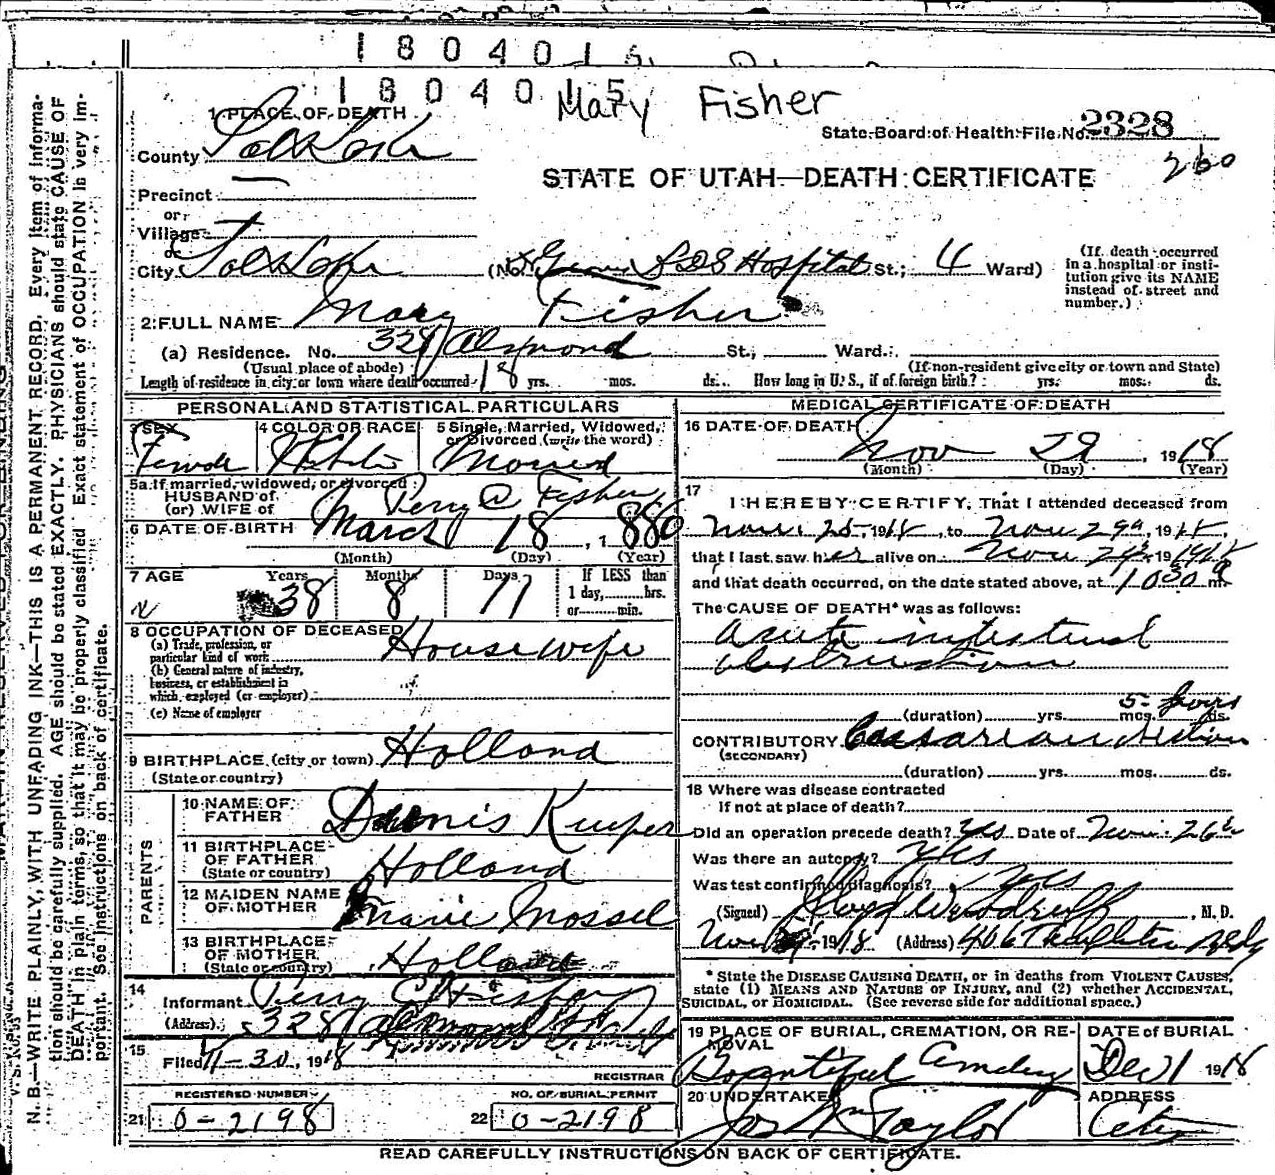 1804015
1804015
Mary Fisher
1 PLACE OF DEATH
State Board of Health File No. 2328
County Salt Lake
260
STATE OF UTAH—DEATH CERTIFICATE
Precinct
or
Village
or
City Salt Lake (No. L D S Hospital St.; 4 Ward)
(If death occurred in a hospital or institution give its NAME instead of street and number.)
2 FULL NAME Mary Fisher
(a) Residence. No. 328 Almond St., Ward.
(Usual place of abode) (If non-resident give city or town and State)
Length of residence in city or town where death occurred 18 yrs. mos. ds. How long in U. S., if of foreign birth? yrs. mos. ds.
PERSONAL AND STATISTICAL PARTICULARS
3 SEX 4 COLOR OR RACE 5 Single, Married, Widowed, or Divorced (write the word)
Female White Married
5a If married, widowed, or divorced
HUSBAND of
(or) WIFE of Perry C Fisher
6 DATE OF BIRTH March 18, 1880
(Month) (Day) (Year)
7 AGE Years Months Days If LESS than
38 8 11 1 day, hrs.
or min.
8 OCCUPATION OF DECEASED
(a) Trade, profession, or
particular kind of work Housewife
(b) General nature of industry,
business, or establishment in
which employed (or employer)
(c) Name of employer
9 BIRTHPLACE (city or town) Holland
(State or country)
PARENTS
10 NAME OF
FATHER Dennis Kuiper
11 BIRTHPLACE
OF FATHER Holland
(State or country)
12 MAIDEN NAME
OF MOTHER Marie Mossel
13 BIRTHPLACE
OF MOTHER Holland
(State or country)
14
Informant Perry C Fisher
(Address) 328 Almond
15
Filed 11-30, 1918
REGISTRAR
REGISTERED NUMBER NO. OF BURIAL PERMIT
21 0-2198 22 0-2198
MEDICAL CERTIFICATE OF DEATH
16 DATE OF DEATH
Nov 29, 1918
(Month) (Day) (Year)
17
I HEREBY CERTIFY, That I attended deceased from
Nov. 25, 1918, to Nov 29, 1918,
that I last saw her alive on Nov 29, 1918
and that death occurred, on the date stated above, at 1030 m.
The CAUSE OF DEATH* was as follows:
Acute intestinal
obstruction
5 hours
(duration) yrs. mos. ds.
CONTRIBUTORY Caesarean section
(SECONDARY)
(duration) yrs. mos. ds.
18 Where was disease contracted
if not at place of death?
Did an operation precede death? Yes Date of Nov. 26
Was there an autopsy? Yes
Was test confirmed diagnosis? Yes
(Signed) Woodruff, M. D.
Nov 1918 (Address) 406 Templeton Bldg
* State the DISEASE CAUSING DEATH, or in deaths from VIOLENT CAUSES,
state (1) MEANS AND NATURE OF INJURY, and (2) whether ACCIDENTAL,
SUICIDAL, or HOMICIDAL. (See reverse side for additional space.)
19 PLACE OF BURIAL, CREMATION, OR RE- DATE of BURIAL
MOVAL
Bountiful Cemetery Dec 1 1918
20 UNDERTAKER ADDRESS
Jos Wm Taylor City
READ CAREFULLY INSTRUCTIONS ON BACK OF CERTIFICATE.
N. B.—WRITE PLAINLY, WITH UNFADING INK—THIS IS A PERMANENT RECORD. Every item of information
should be carefully supplied. AGE should be stated EXACTLY. PHYSICIANS should state CAUSE OF
DEATH in plain terms, so that it may be properly classified. Exact statement of OCCUPATION is very important.
See instructions on back of certificate.